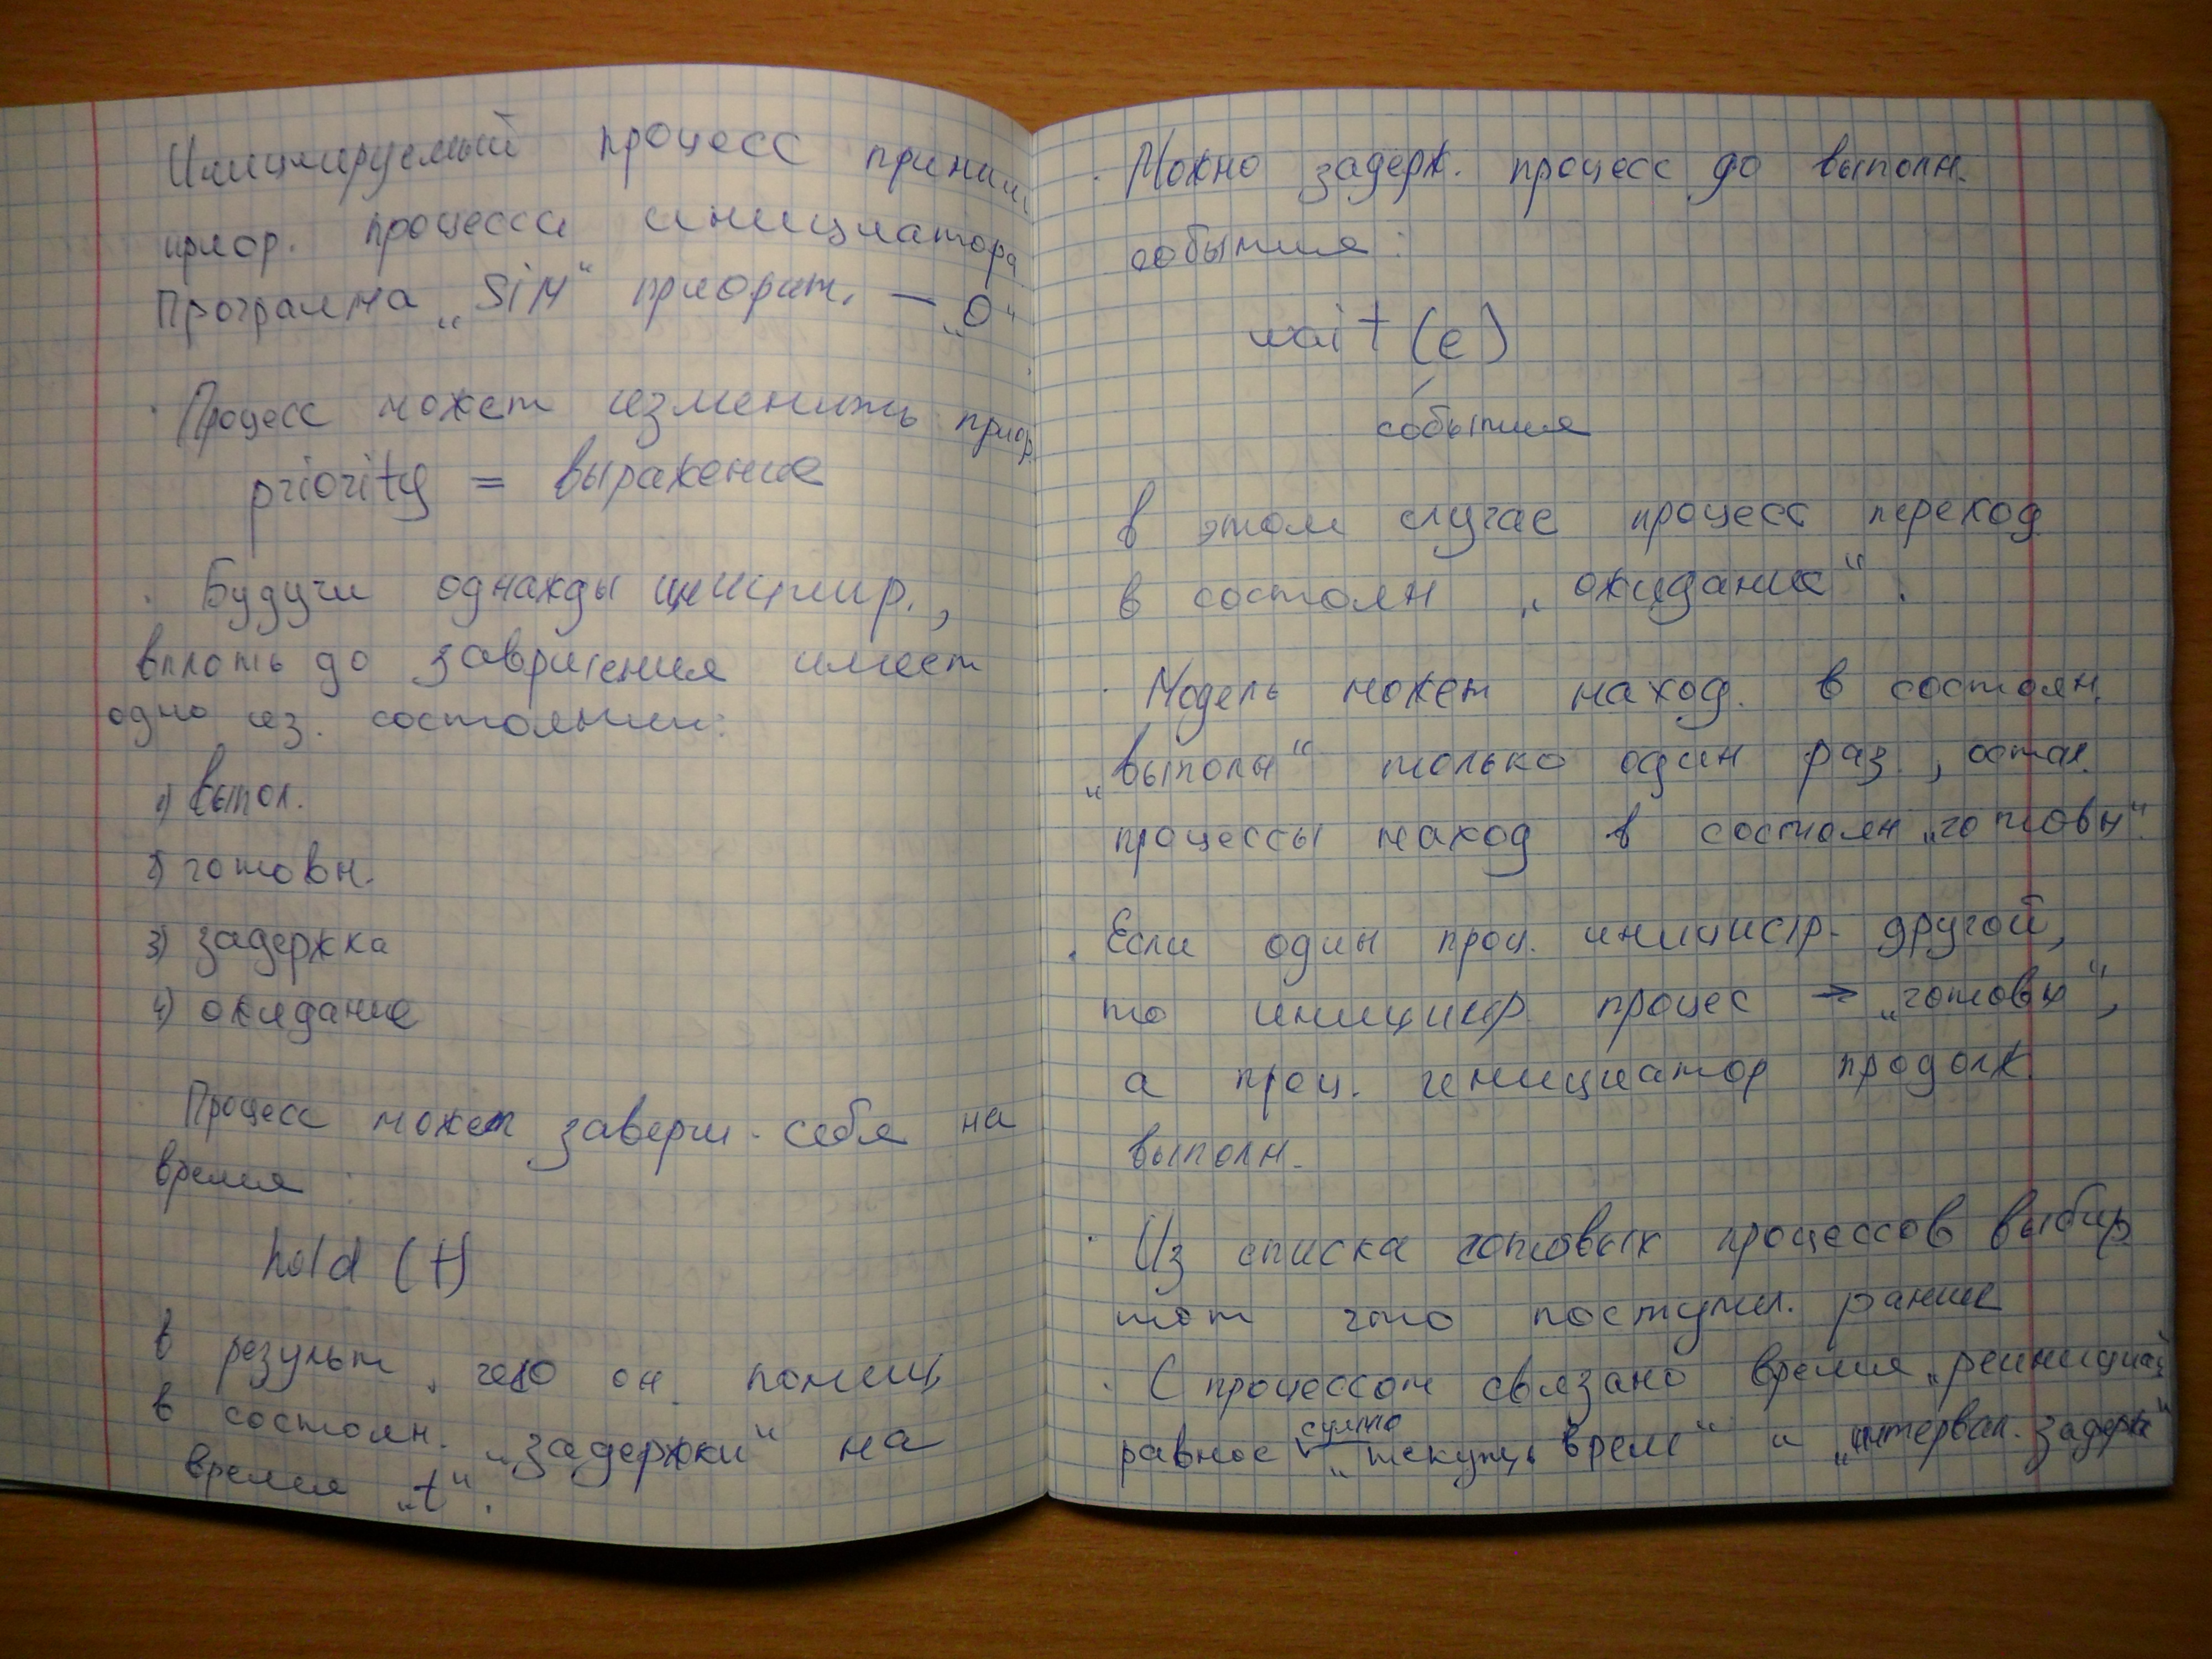 Инициируемый процесс приним
приор. процесса инициатора
Программа „SiM“ приорит. — „0“
· Процесс может изменить приор
priority = выражение
· Будучи однажды инициир.,
вплоть до завршения имеет
одно из. состоянии:
1) выпол.
2) готовн.
3) задержка
4) ожидание
Процесс может заверш. себя на
время :
hold (t)
в результ. чего он помещ.
в состоян. „задержки“ на
время „t“.
· Можно задерж. процесс до выполн.
события :
wait (e)
событие
в этом случае процесс переход
в состоян „ожидание“.
· Модель может наход. в состоян.
„выполн“ только один раз , остал.
процессы наход в состоян „готовн“.
· Если один проц. инициир. другой,
то инициир. процес → „готовн“,
а проц. инициатор продолж
выполн.
· Из списка готовых процессов выбир
тот что поступил. раньше
· С процессом связано время „реинициац
равное сумме „текущ. врем“ и „интервал. задерж“